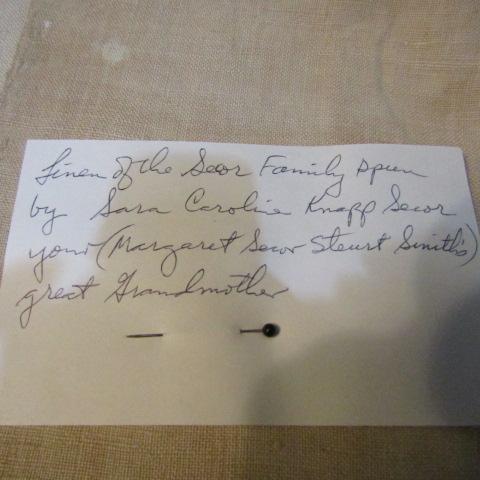 Linen of the Secor Family spun
by Sara Caroline Knapp Secor
your (Margaret Secor Steurt Smith's)
great Grandmother